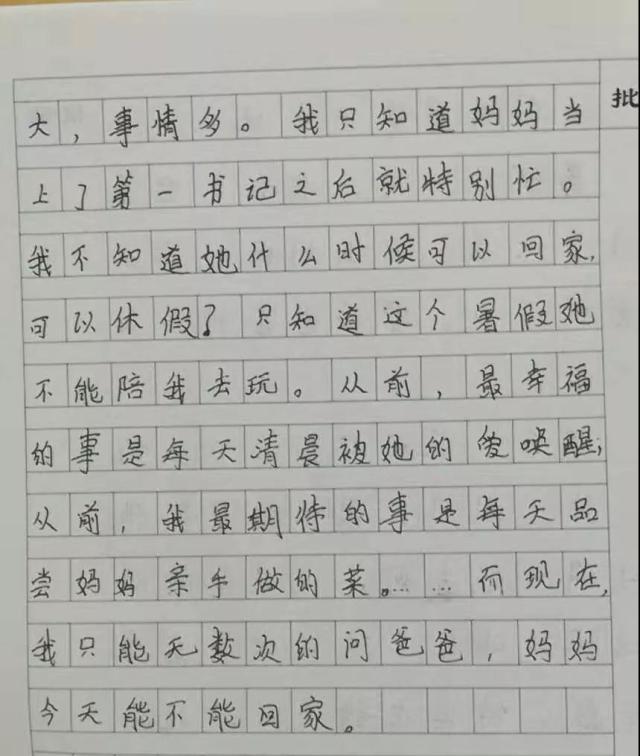 批
大，事情多。我只知道妈妈当
上了第一书记之后就特别忙。
我不知道她什么时候可以回家，
可以休假？只知道这个暑假她
不能陪我去玩。从前，最幸福
的事是每天清晨被她的爱唤醒；
从前，我最期待的事是每天品
尝妈妈亲手做的菜。……而现在，
我只能无数次的问爸爸，妈妈
今天能不能回家。